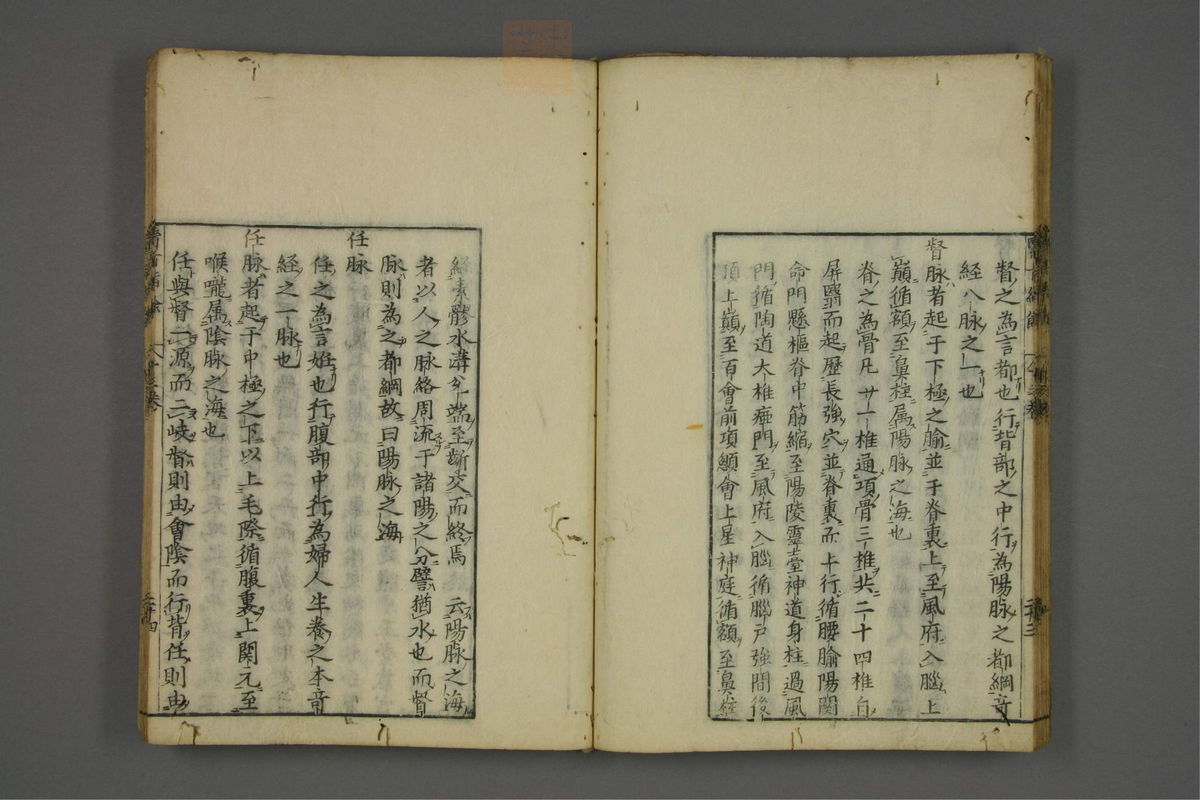 督之為言都也行背部之中行為陽脉之都綱竒
經八脉之一也
督脉者起于下極之腧並于脊裏上至風府入腦上
巔循額至鼻柱属陽脉之海也
脊之為骨凡廿一椎通項骨三椎共二十四椎自
屏翳而起歷長強穴並脊裏而上行循腰腧陽関
命門懸樞脊中筋縮至陽陵靈臺神道身柱過風
門循陶道大椎瘂門至風府入腦循腦戸強間後
頂上巔至百會前項顖會上星神庭循額至鼻柱
經素髎水溝兊端至齗交而終焉 云陽脉之海
者以人之脉絡周流于諸陽之分譬猶水也而督
脉則為之都綱故曰陽脉之海
任脉
任之為言妊也行腹部中行為婦人生養之本竒
經之一脉也
任脉者起于中極之下以上毛際循腹裏上関元至
喉嚨属陰脉之海也
任與督一源而二岐督則由會陰而行背任則由